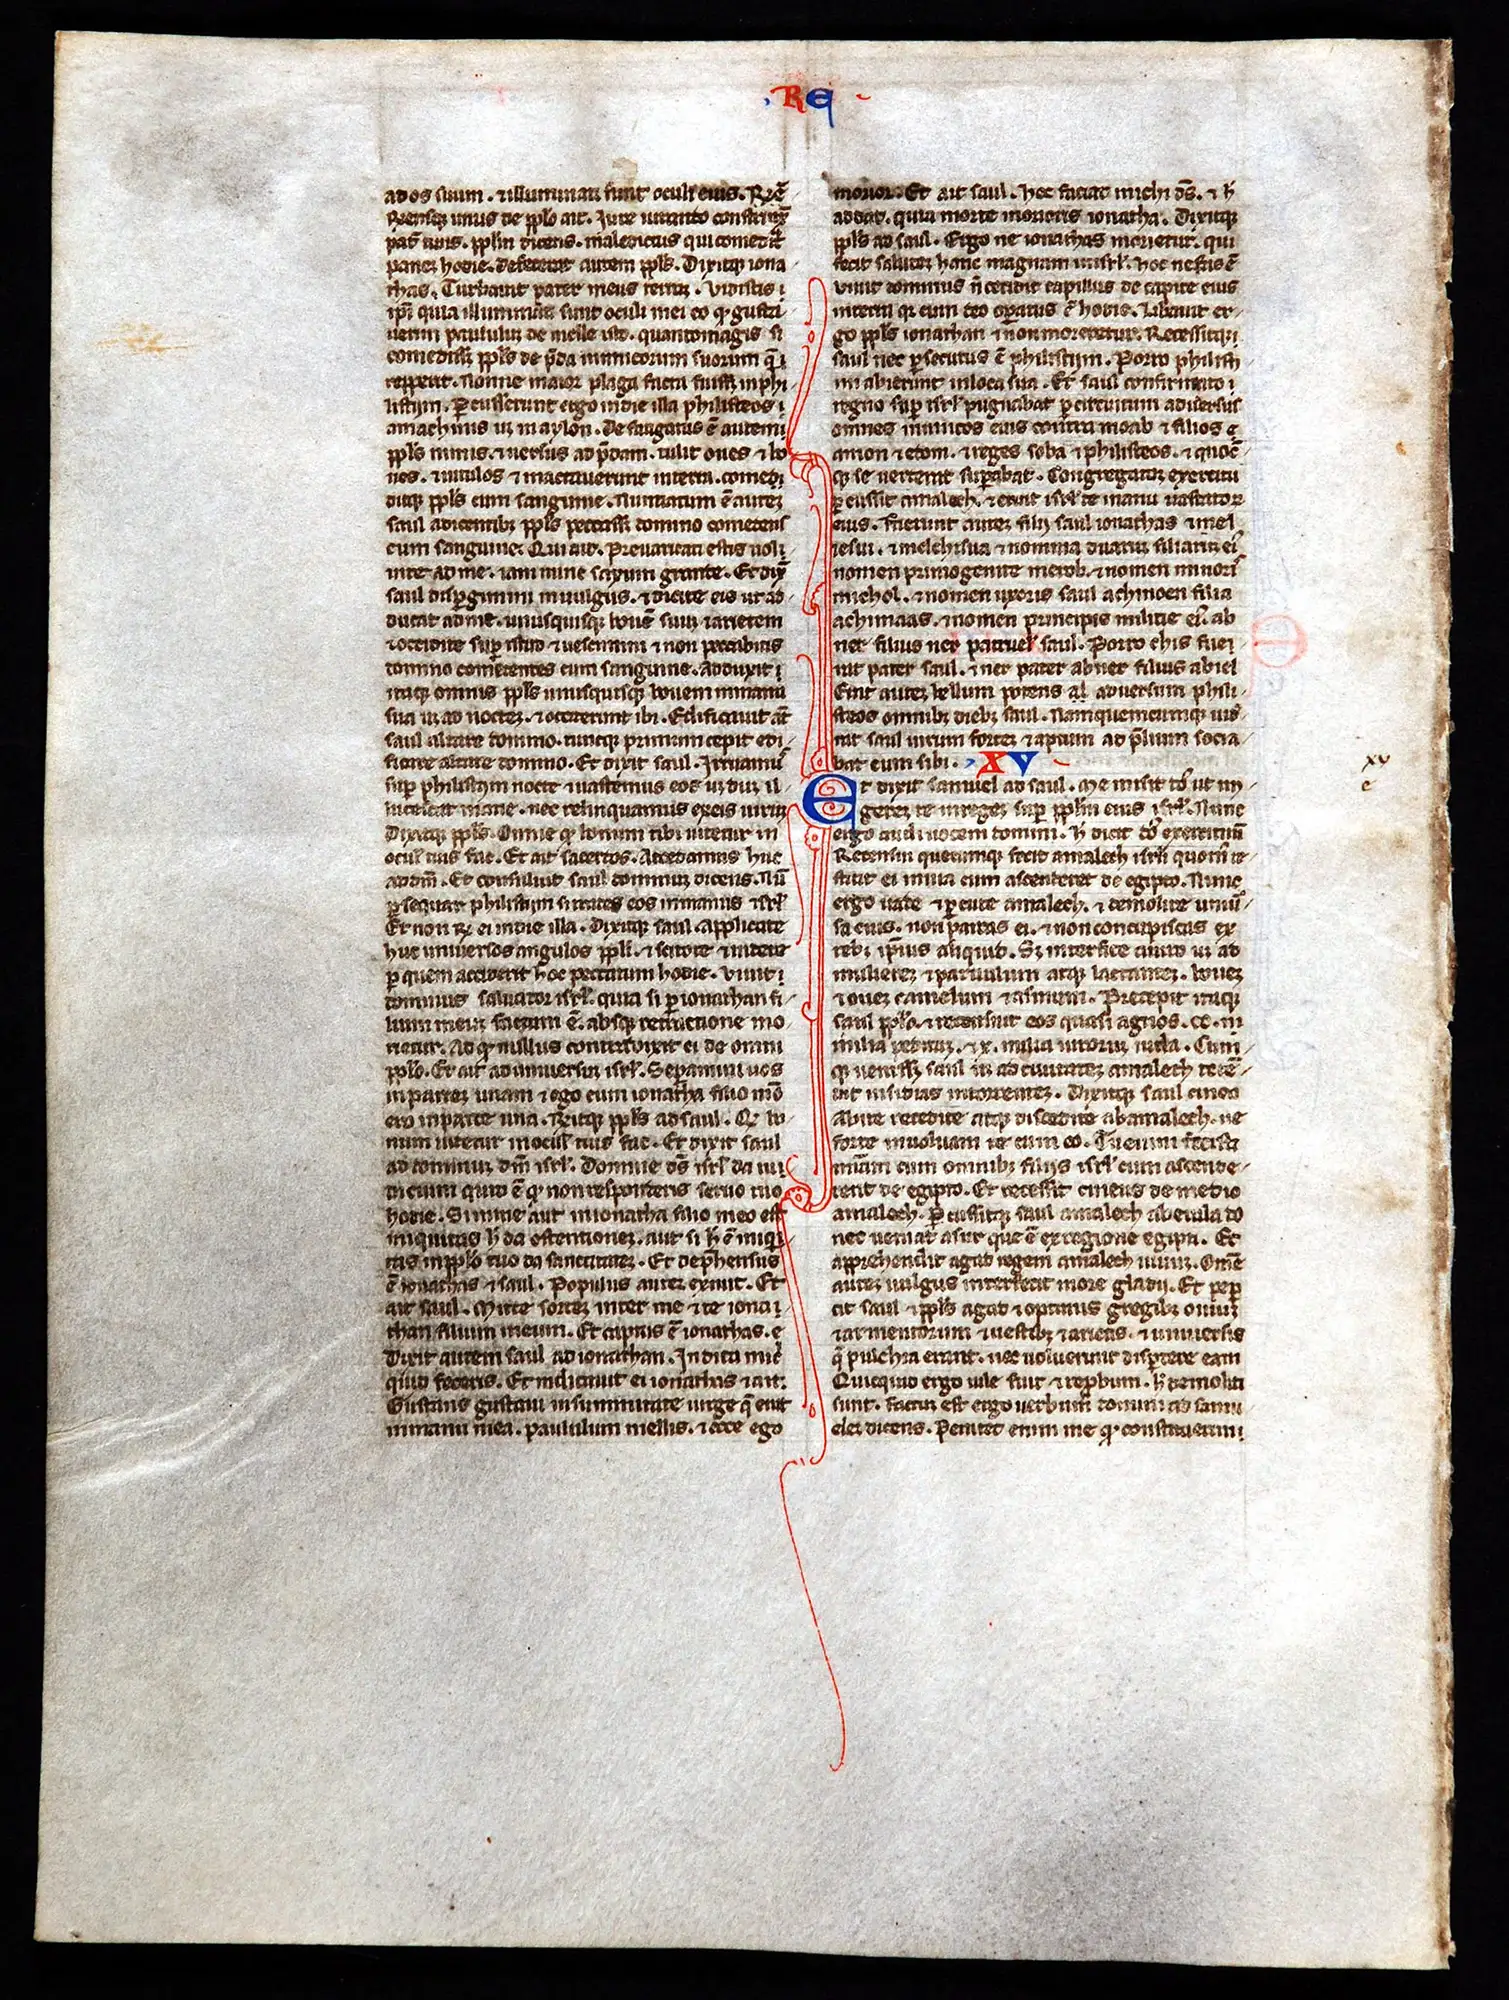 RE
ad os suum . ⁊ illuminati sunt oculi eius . Rñ
densq; unus de pplo ait . Iure iurando constrinx̄
pat̃ tuus . pplm dicens . maledictus qui comedit̃
panez hodie . defecerat autem ppls . Dixitq; iona
thas . Turbauit pater meus terraz . Vidistis i
ipi quia illuminati sunt oculi mei eo qɔ gusta
uerim paululuz de melle isto . quantomagis si
comedisset ppls de p̄da inimicorum suorum q̄
repperit . Nonne maior plaga facta fuisset in phi
listijm . Percusserunt ergo in die illa philisteos i
a machmis usq; in aylon . Defatigatus ē autem
ppls nimis . ⁊ uersus ad p̄dam . tulit oues ⁊ bo
ues . ⁊ uitulos ⁊ mactauerunt in terra . comedi
ditq; ppls cum sanguine . Nuntiatum ē autez
saul dicentibz ppls peccasset domino comedens
cum sanguine . Qui ait . Preuaricati estis uol
uite ad me . iam nunc saxum grande . Et dix̄
saul dispergimini in uulgus . ⁊ dicite eis ut ad
ducat ad me . unusquisq; bouē suuz ⁊ arietem
⁊ occidite sup istud ⁊ uescimini ⁊ non peccabitis
domino comedentes cum sanguine . Adduxit i
taq; omnis ppls unusquisq; bouem in manu
sua usq; ad noctez . ⁊ occiderunt ibi . Edificauit aūt
saul altare domino . tuncq; primum cepit edi
ficare altare domino . Et dixit saul . Irruamus
sup philistijm nocte ⁊ uastemus eos usq; duz il
lucescat mane . nec relinquamus ex eis uiruz
Dixitq; ppls . Omne qɔ bonum tibi uidetur in
ocul tuis fac . Et ait sacerdos . Accedamus huc
ad dm̄ . Et consuluit saul dominuz dicens . Nū
p sequar philistijm si trades eos in manus isrl
Et non Rn̄ ei in die illa . Dixitq; saul . Applicate
huc uniuersos angulos ppli . ⁊ scitote ⁊ uidete
p quem acciderit hoc peccatum hodie . Viuit
dominus saluator isrl . quia si p ionathan fi
lium meuz factum ē . absq; retractione mo
rietur . Ad qɔ nullus contradixit ei de omni
pplo . Et ait ad uniuersuz isrl . Separamini uos
in partez unam ⁊ ego cum ionatha filio meo
ero in parte una . Rn̄ditq; ppls ad saul . Qɔ bo
num uidetur in ocul tuis fac . Et dixit saul
ad dominuz dm̄ isrl . Domine ds̄ isrl da iu
dicium quid ē qɔ non responderis seruo tuo
hodie . Si in me aut in ionatha filio meo est
iniquitas h̄ da ostentionez . aut si h̄ ē iniqui
tas in pplo tuo da sanctitatez . Et dep̄hensus
ē ionathas ⁊ saul . Populus autez exiuit . Et
ait saul . Mitte sortez inter me ⁊ te iona
than filium meum . Et captus ē ionathas .
Dixit autem saul ad ionathan . Indica mic̄
quid feceris . Et indicauit ei ionathas ⁊ ait .
Gustans gustaui in summitate uirge q̄ erat
in manu mea . paululum mellis . ⁊ ecce ego
morior . Et ait saul . hec faciat michi ds̄ . ⁊ h̄
addat . quia morte morieris ionatha . Dixitq;
ppls ad saul . Ergo ne ionathas morietur . qui
fecit salutez hanc magnam in isrl . hoc nefas ē
viuit dominus ñ ceciderit capillus de capite eius
in terra qɔ cum deo opatus ē hodie . Liberauit er
go ppls ionathan ⁊ non moreretur . Recessitq;
saul nec p secutus ē philistijm . Porro philisti
im abierunt in loca sua . Et saul confirmato i
regno sup isrl pugnabat p circuitum aduersus
omnes inimicos eius contra moab ⁊ filios
amon ⁊ edom . ⁊ reges soba ⁊ philisteos . ⁊ quoc̄
qɔ se uerterat supabat . Congregatoq; exercitu
p cussit amalech . ⁊ eruit isrl de manu uastatorz
eius . Fuerunt autez filij saul ionathas ⁊ iesui
iesui . ⁊ melchisua ⁊ nomina duaruz filiaruz ei
nomen primogenite merob . ⁊ nomen minoris
michol . ⁊ nomen uxoris saul achinoen filia
achimaas . ⁊ nomen principis militie ei . ab
ner filius ner patruel saul . Porro chis fuer
at pater saul . ⁊ ner pater abner filius abiel
Erat autez bellum potens al aduersum phili
steos omnibz diebz saul . Nam quemcumq; uid
rat saul uirum fortez ⁊ aptum ad p̄lium socia
bat eum sibi . XV
xv
e
Et dixit samuel ad saul . Me misit dō ut un
gerez te in regez sup pplm eius isrl . Nunc
ergo audi uocem domini . h̄ dicit dō exercituū
Recensui quecumq; fecit amalech isrli quom̄ re
stitit ei in uia cum ascenderet de egipto . Nunc
ergo uade ⁊ p cute amalech . ⁊ demolire uniū
sa eius . non parcas ei . ⁊ non concupiscas ex
rebz ipsius aliquid . Sz interfice a uiro usq; ad
mulierez ⁊ paruulum atq; lactantez . bouez
⁊ ouez camelum ⁊ asinum . Precepit itaq;
saul pplo . ⁊ recensuit eos quasi agnos . cc . m
milia peditaz . ⁊ x . milia uirorum iuda . Cum
qɔ uenisset saul usq; ad ciuitatez amalech teten
dit insidias in torrentez . Dixitq; saul cineo
Abite recedite atq; discedite ab amalech . ne
forte inuoluam te cum eo . Tu enim fecisti
miam cum omnibz filijs isrl cum ascende
rent de egipto . Et recessit cineus de medio
amalech . Percussitq; saul amalech ab euila do
nec uenias ad sur que ē ex regione egipti . Et
apprehendit agag regem amalech uiuuz . Omē
autez uulgus interfecit more gladij . Et pep
cit saul ⁊ ppls agag ⁊ optimis gregibz ouiuz
⁊ armentorum ⁊ uestibz ⁊ arietis . ⁊ uniuersis
q̄ pulchra erant . nec uoluerunt disperdere eam
Quicquid ergo uile fuit ⁊ repbum . h̄ demoliti
sunt . Factuz est ergo uerbum domini ad samu
elez dicens . Penitet enim me qɔ constituerim